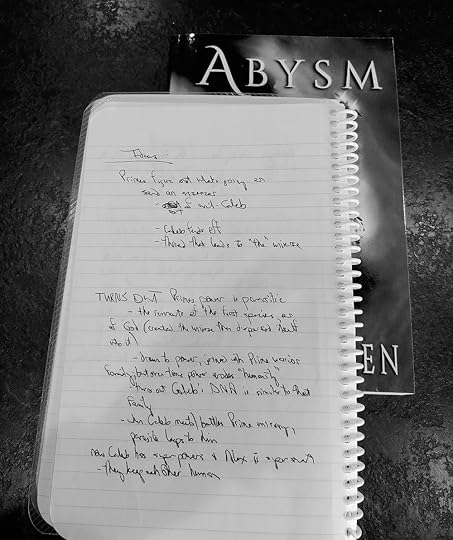 ABYSM
EN
Ideas
Primes figure out what's going on
send an
- of evil Caleb
- Caleb fends off
- thread that leads to "the" universe
TURNS OUT Primes power is parasitic
- the remnants of the first species, or
of God (created the universe then dispersed itself
into it)
- drawn to power, joined with Prime warrior
family, but over time power erodes "humanity"
turns out Caleb's DNA is similar to that
family
- when Caleb meets/battles Prime emissary,
parasite leaps to him
now Caleb has superpowers & Alex is super smart
- they keep each other human